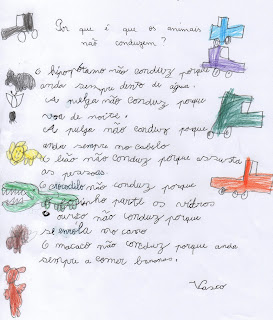 Por que é que os animais
não conduzem?
O hipopótamo não conduz porque
anda sempre dento de água.
A pulga não conduz porque
voa de noite.
A pulga não conduz porque
anda sempre no cabelo
O leão não conduz porque assusta
as pessoas.
O crocodilo não conduz porque
os vidros
não conduz porque
se enrola no carro
O macaco não conduz porque anda
sempre a comer bananas.
Vasco